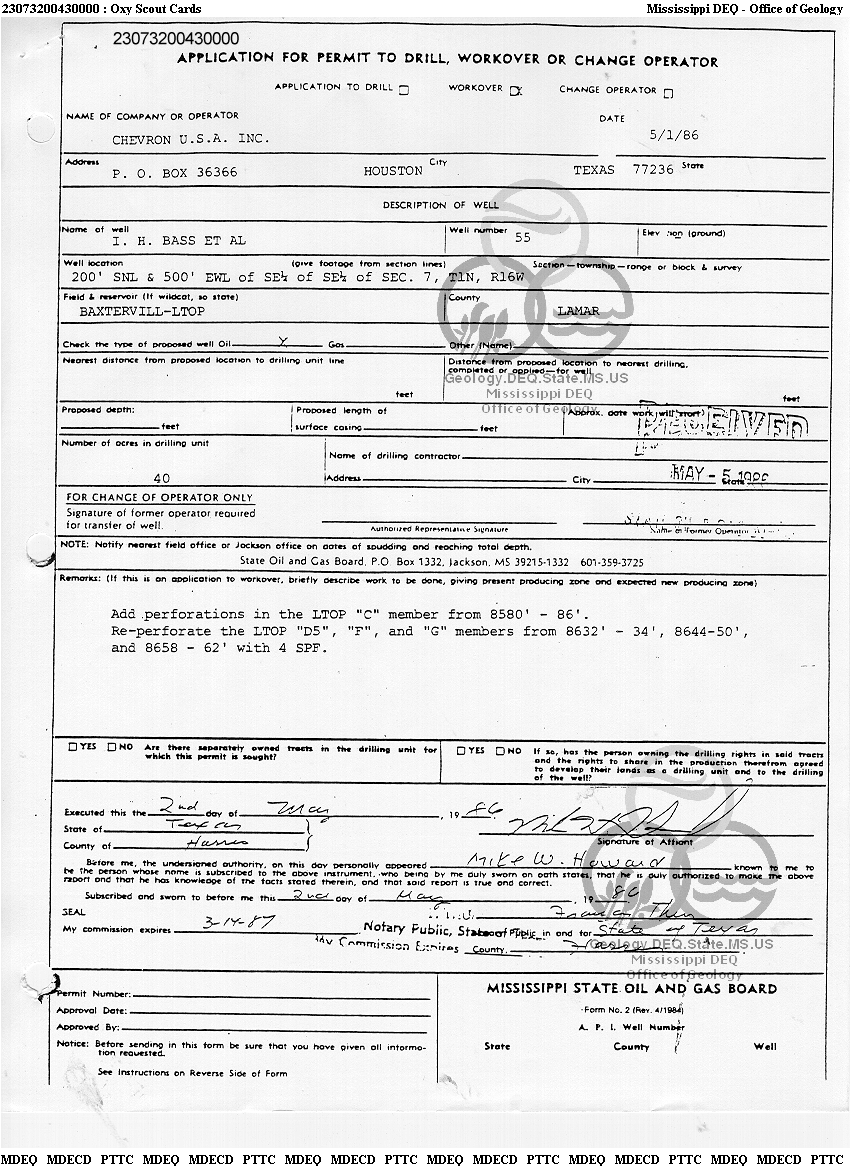 23073200430000 : Oxy Scout Cards Mississippi DEQ - Office of Geology
23073200430000
APPLICATION FOR PERMIT TO DRILL, WORKOVER OR CHANGE OPERATOR
APPLICATION TO DRILL ☐ WORKOVER ☒ CHANGE OPERATOR ☐
NAME OF COMPANY OR OPERATOR DATE
CHEVRON U.S.A. INC. 5/1/86
Address City State
P. O. BOX 36366 HOUSTON TEXAS 77236
DESCRIPTION OF WELL
Name of well Well number Elev (ground)
I. H. BASS ET AL 55
Well location (give footage from section lines) Section—township—range or block & survey
200' SNL & 500' EWL of SE¼ of SE¼ of SEC. 7, T1N, R16W
Field & reservoir (If wildcat, so state) County
BAXTERVILL-LTOP LAMAR
Check the type of proposed well Oil X Gas Other (Name)
Nearest distance from proposed location to drilling unit line Distance from proposed location to nearest drilling,
completed or applied—for well
Geology.DEQ.State.MS.US
Mississippi DEQ
feet feet
Office of Geology
Proposed depth: Proposed length of Approx. date work will start
feet surface casing feet
RECEIVED
Number of acres in drilling unit Name of drilling contractor
40 Address City State
MAY - 5 1986
FOR CHANGE OF OPERATOR ONLY
Signature of former operator required
for transfer of well.
Authorized Representative Signature Name of Former Operator
NOTE: Notify nearest field office or Jackson office on dates of spudding and reaching total depth.
State Oil and Gas Board, P.O Box 1332, Jackson, MS 39215-1332 601-359-3725
Remarks: (If this is an application to workover, briefly describe work to be done, giving present producing zone and expected new producing zone)
Add perforations in the LTOP "C" member from 8580' - 86'.
Re-perforate the LTOP "D5", "F", and "G" members from 8632' - 34', 8644-50',
and 8658 - 62' with 4 SPF.
☐ YES ☐ NO Are there separately owned tracts in the drilling unit for
which this permit is sought?
☐ YES ☐ NO If so, has the person owning the drilling rights in said tracts
and the rights to share in the production therefrom agreed
to develop their lands as a drilling unit and to the drilling
of the well?
Executed this the 2nd day of May, 19 86
State of Texas
County of Harris Signature of Affiant
Before me, the undersigned authority, on this day personally appeared Mike W. Howard known to me to
be the person whose name is subscribed to the above instrument, who being by me duly sworn on oath states, that he is duly authorized to make the above
report and that he has knowledge of the facts stated therein, and that said report is true and correct.
Subscribed and sworn to before me this 2nd day of May, 19 86
SEAL
My commission expires 3-14-87 Notary Public, State of Public in and for State of Texas
My Commission Expires County.
Geology.DEQ.State.MS.US
Mississippi DEQ
Office of Geology
Permit Number:
Approval Date:
Approved By:
Notice: Before sending in this form be sure that you have given all informa-
tion requested.
See Instructions on Reverse Side of Form
MISSISSIPPI STATE OIL AND GAS BOARD
Form No. 2 (Rev. 4/1984)
A. P. I. Well Number
State County Well
MDEQ MDECD PTTC MDEQ MDECD PTTC MDEQ MDECD PTTC MDEQ MDECD PTTC MDEQ MDECD PTTC MDEQ MDECD PTTC